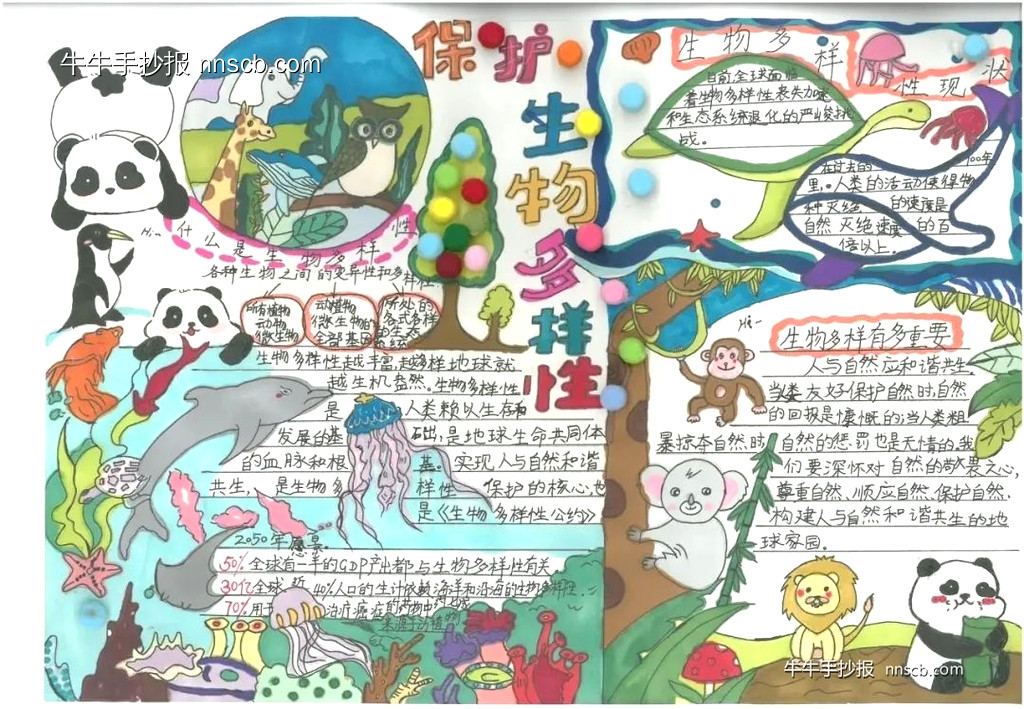 牛牛手抄报 nnscb.com
保护生物多样性
什么是生物多样性
各种生物之间的变异性和多样性
所有植物
动物
微生物
动植物
微生物的
全部基因
所处的
各式各样
的生态
系统
生物多样性越丰富,越多样地球就
越生机盎然。生物多样性
是人类赖以生存和
发展的基础,是地球生命共同体
的血脉和根基。实现人与自然和谐
共生,是生物多样性保护的核心,也
是《生物多样性公约》
2050年愿景。
50% 全球有一半的GDP产出都与生物多样性有关
30亿 全球近40%人口的生计依赖海洋和沿海的生物多样性
70% 用于治疗癌症的药物中
Hi~
生物多样性现状
目前全球面临
着生物多样性丧失加
和生态系统退化的严峻挑
战。
在过去的100年
里,人类的活动使得物
种灭绝的速度是
自然灭绝速度的百
倍以上。
Hi~
生物多样有多重要
人与自然应和谐共生,
当类友好保护自然时,自然
的回报是慷慨的;当人类粗
暴掠夺自然时,自然的惩罚也是无情的,我
们要深怀对自然的敬畏之心,
尊重自然、顺应自然、保护自然,
构建人与自然和谐共生的地
球家园。
牛牛手抄报 nnscb.com